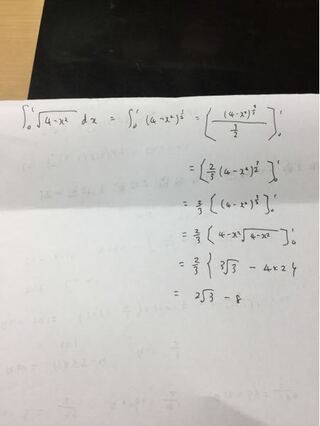 ∫₀¹ √(4-x²) dx = ∫₀¹ (4-x²)^(1/2) = [ (4-x²)^(3/2) / (3/2) ]₀¹
= [ 2/3 (4-x²)^(3/2) ]₀¹
= 2/3 [ (4-x²)^(3/2) ]₀¹
= 2/3 [ 4-x² √(4-x²) ]₀¹
= 2/3 { 3√3 - 4×2 }
= 2√3 - 8